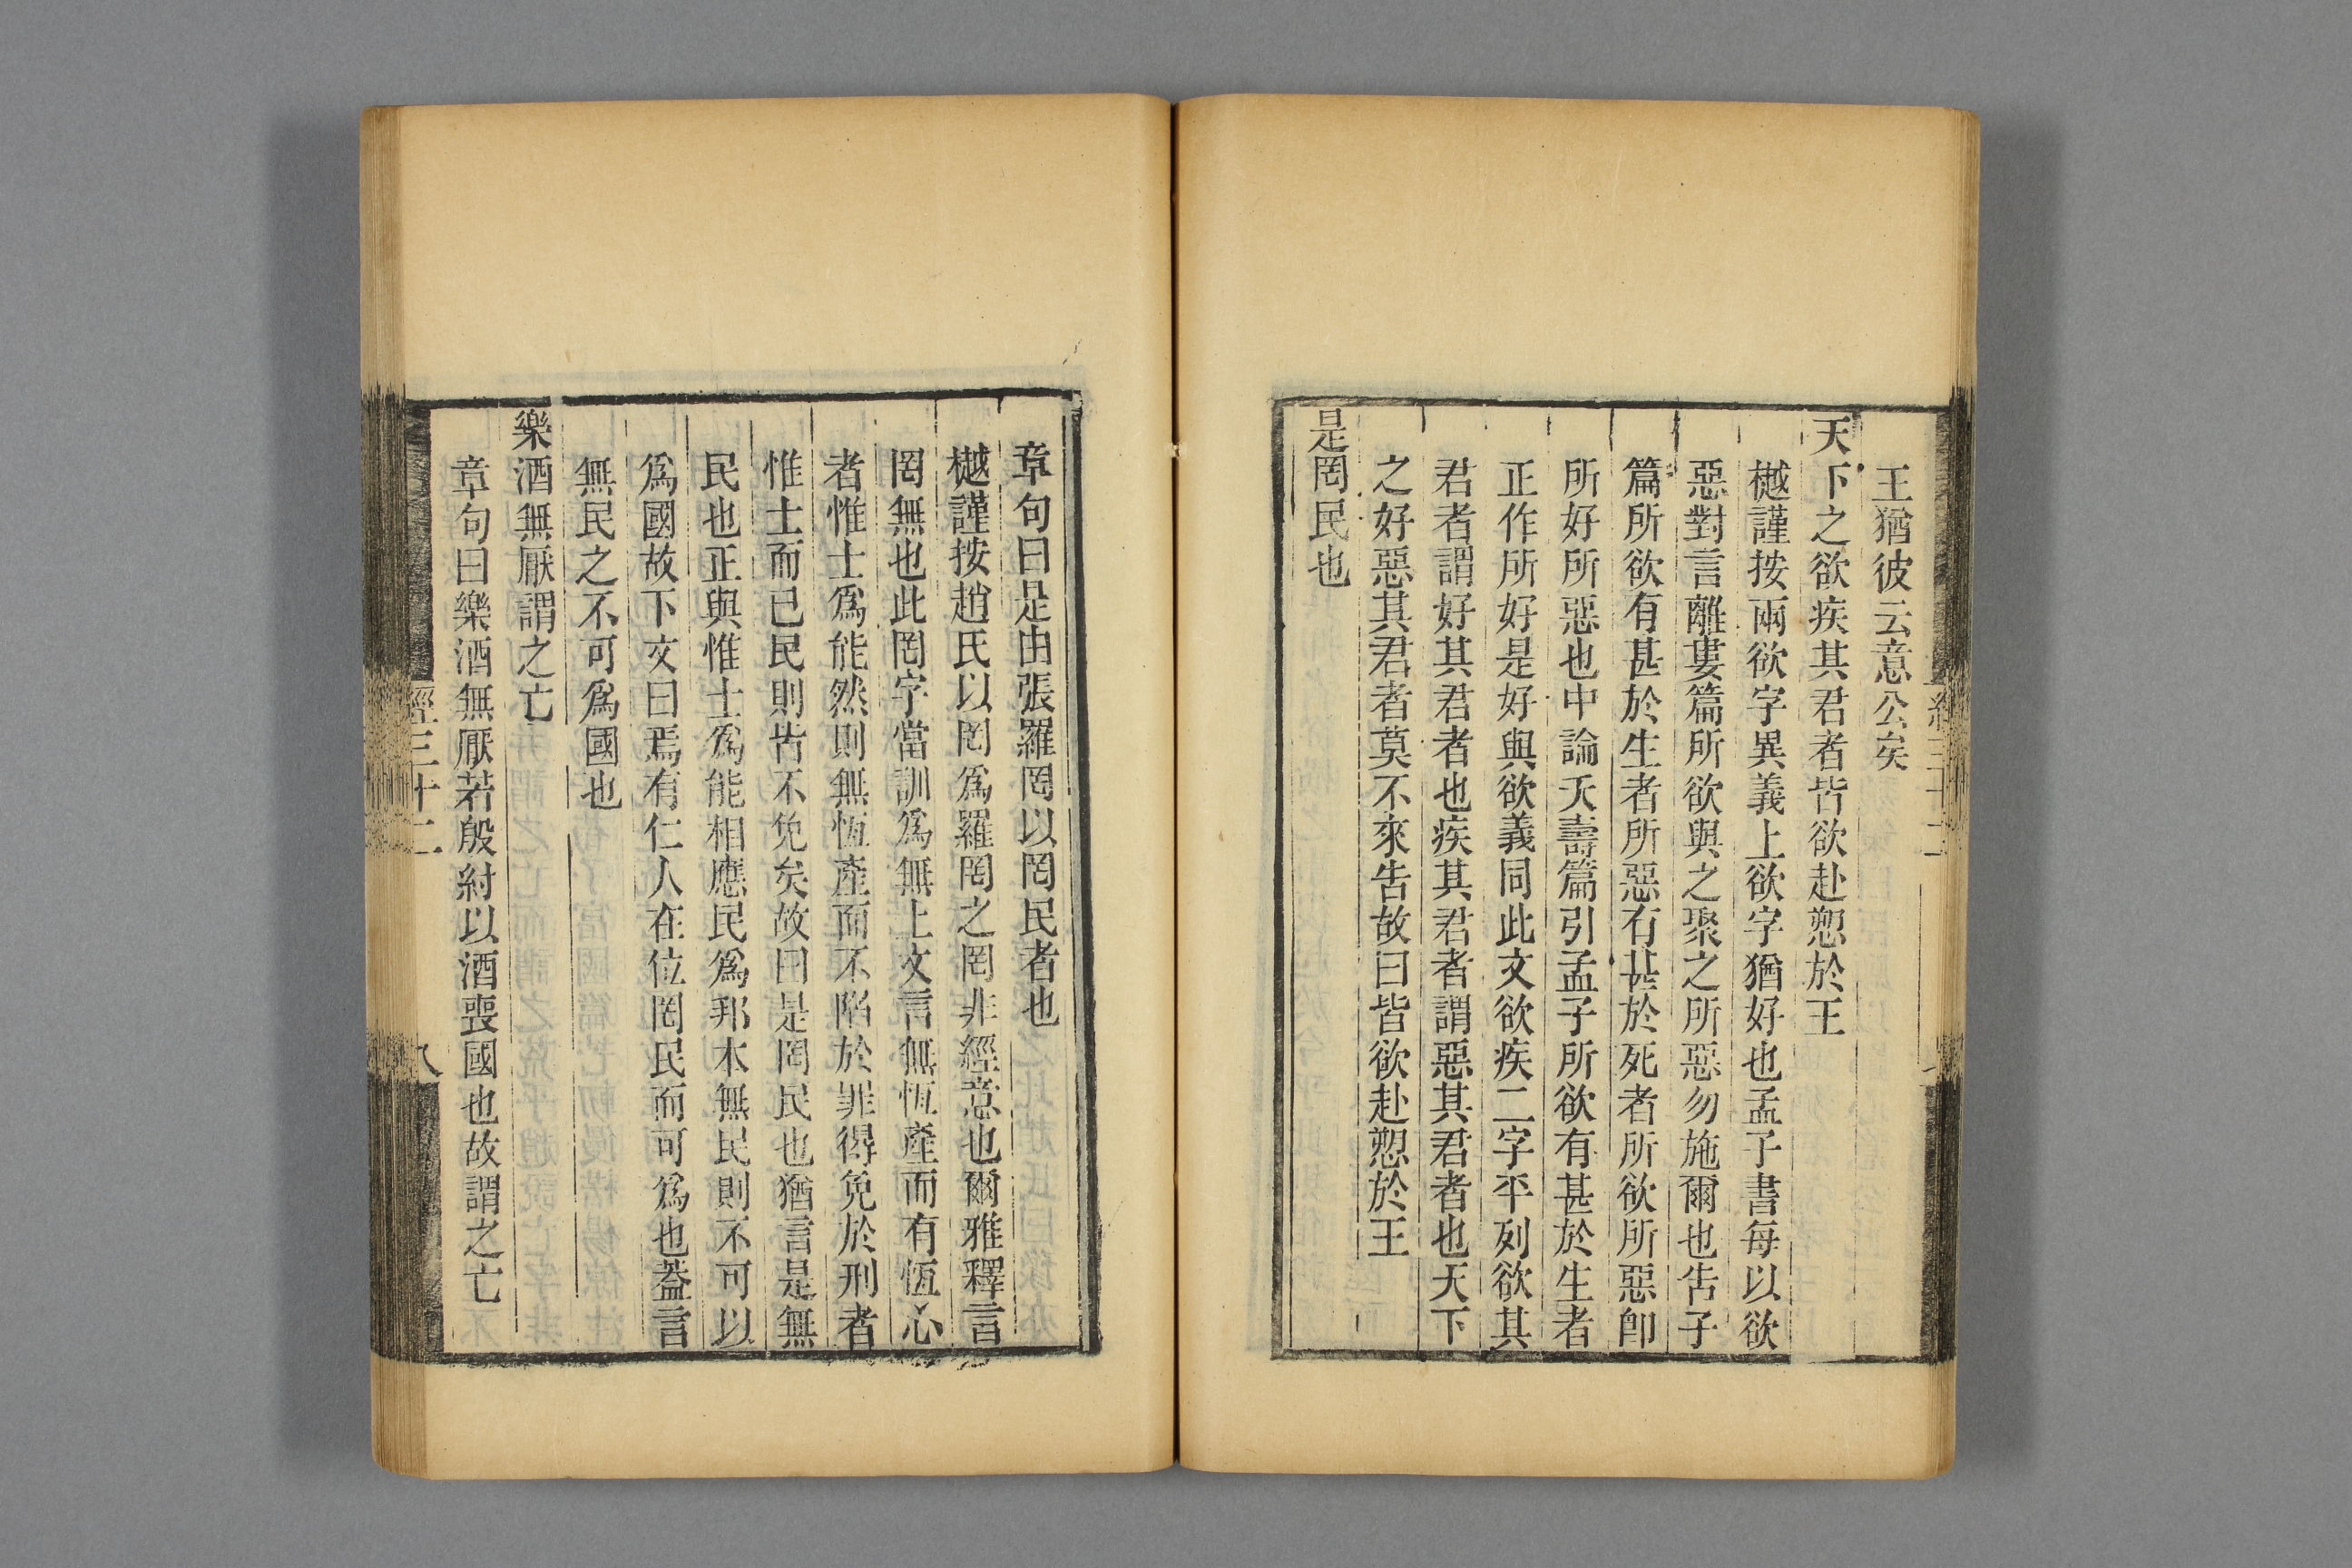 王猶彼云意公矣
天下之欲疾其君者皆欲赴愬於王
樾謹按兩欲字異義上欲字猶好也孟子書每以欲
惡對言離婁篇所欲與之聚之所惡勿施爾也告子
篇所欲有甚於生者所惡有甚於死者所欲所惡卽
所好所惡也中論夭壽篇引孟子所欲有甚於生者
正作所好是好與欲義同此文欲疾二字平列欲其
君者謂好其君者也疾其君者謂惡其君者也天下
之好惡其君者莫不來告故曰皆欲赴愬於王
是罔民也
章句曰是由張羅罔以罔民者也
樾謹按趙氏以罔爲羅罔之罔非經意也爾雅釋言
罔無也此罔字當訓爲無上文言無恆產而有恆心
者惟士爲能然則無恆產而不陷於罪得免於刑者
惟士而已民則皆不免矣故曰是罔民也猶言是無
民也正與惟士爲能相應民爲邦本無民則不可以
爲國故下文曰焉有仁人在位罔民而可爲也葢言
無民之不可爲國也
樂酒無厭謂之亡
章句曰樂酒無厭若殷紂以酒喪國也故謂之亡
經三十二
八